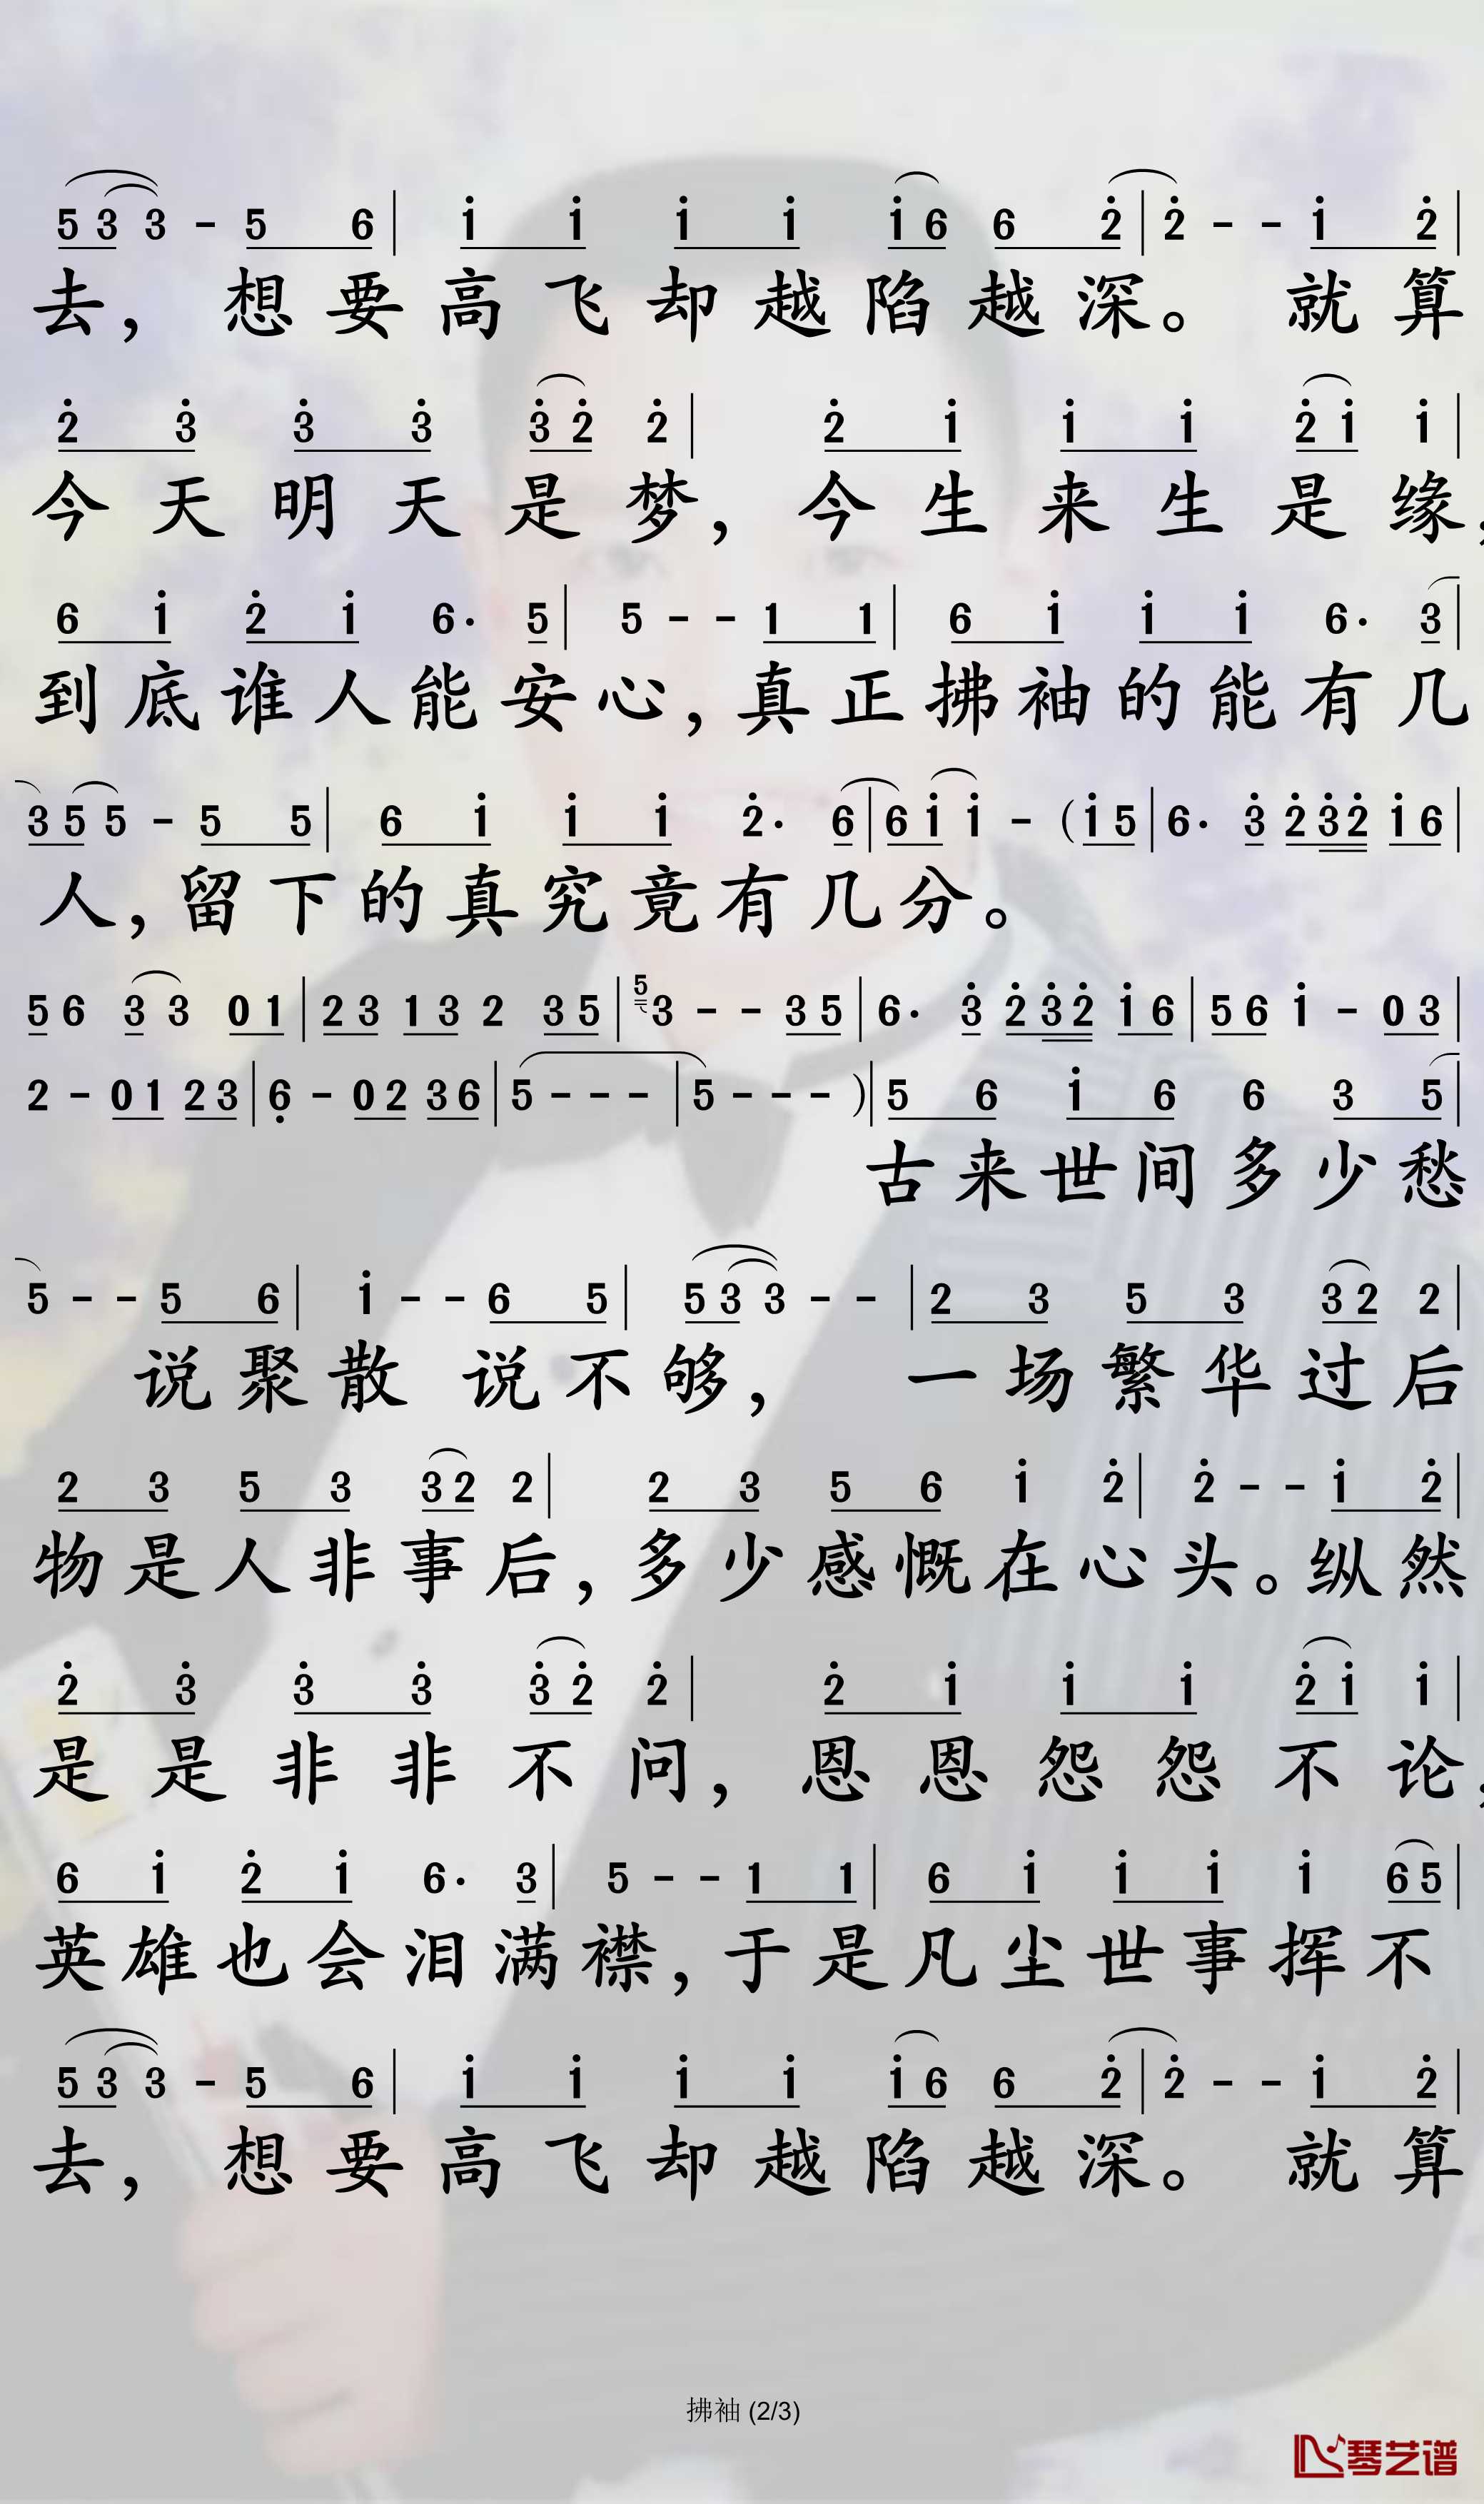 5 3 3 - 5 6 | i i i i i 6 6 2̇ | 2̇ - - i 2̇ |
去， 想 要 高 飞 却 越 陷 越 深。 就 算
2̇ 3̇ 3̇ 3̇ 3̇ 2̇ 2̇ | 2̇ i i i 2̇ i i |
今 天 明 天 是 梦， 今 生 来 生 是 缘，
6 i 2̇ i 6· 5 | 5 - - 1 1 | 6 i i i 6· 3 |
到 底 谁 人 能 安 心， 真 正 拂 袖 的 能 有 几
3 5 5 - 5 5 | 6 i i i 2̇· 6 | 6 i i - (i 5 | 6· 3̇ 2̇ 3̇ 2̇ i 6 |
人， 留 下 的 真 究 竟 有 几 分。
5 6 3 3 0 1 | 2 3 1 3 2 3 5 | 5 3 - - 3 5 | 6· 3̇ 2̇ 3̇ 2̇ i 6 | 5 6 i - 0 3 |
2 - 0 1 2 3 | 6̣ - 0 2 3 6 | 5 - - - | 5 - - - ) | 5 6 i 6 6 3 5 |
古 来 世 间 多 少 愁
5 - - 5 6 | i - - 6 5 | 5 3 3 - - | 2 3 5 3 3 2 2 |
说 聚 散 说 不 够， 一 场 繁 华 过 后
2 3 5 3 3 2 2 | 2 3 5 6 i 2̇ | 2̇ - - i 2̇ |
物 是 人 非 事 后， 多 少 感 慨 在 心 头。 纵 然
2̇ 3̇ 3̇ 3̇ 3̇ 2̇ 2̇ | 2̇ i i i 2̇ i i |
是 是 非 非 不 问， 恩 恩 怨 怨 不 论，
6 i 2̇ i 6· 3 | 5 - - 1 1 | 6 i i i i 6 5 |
英 雄 也 会 泪 满 襟， 于 是 凡 尘 世 事 挥 不
5 3 3 - 5 6 | i i i i i 6 6 2̇ | 2̇ - - i 2̇ |
去， 想 要 高 飞 却 越 陷 越 深。 就 算
拂袖 (2/3)
琴艺谱